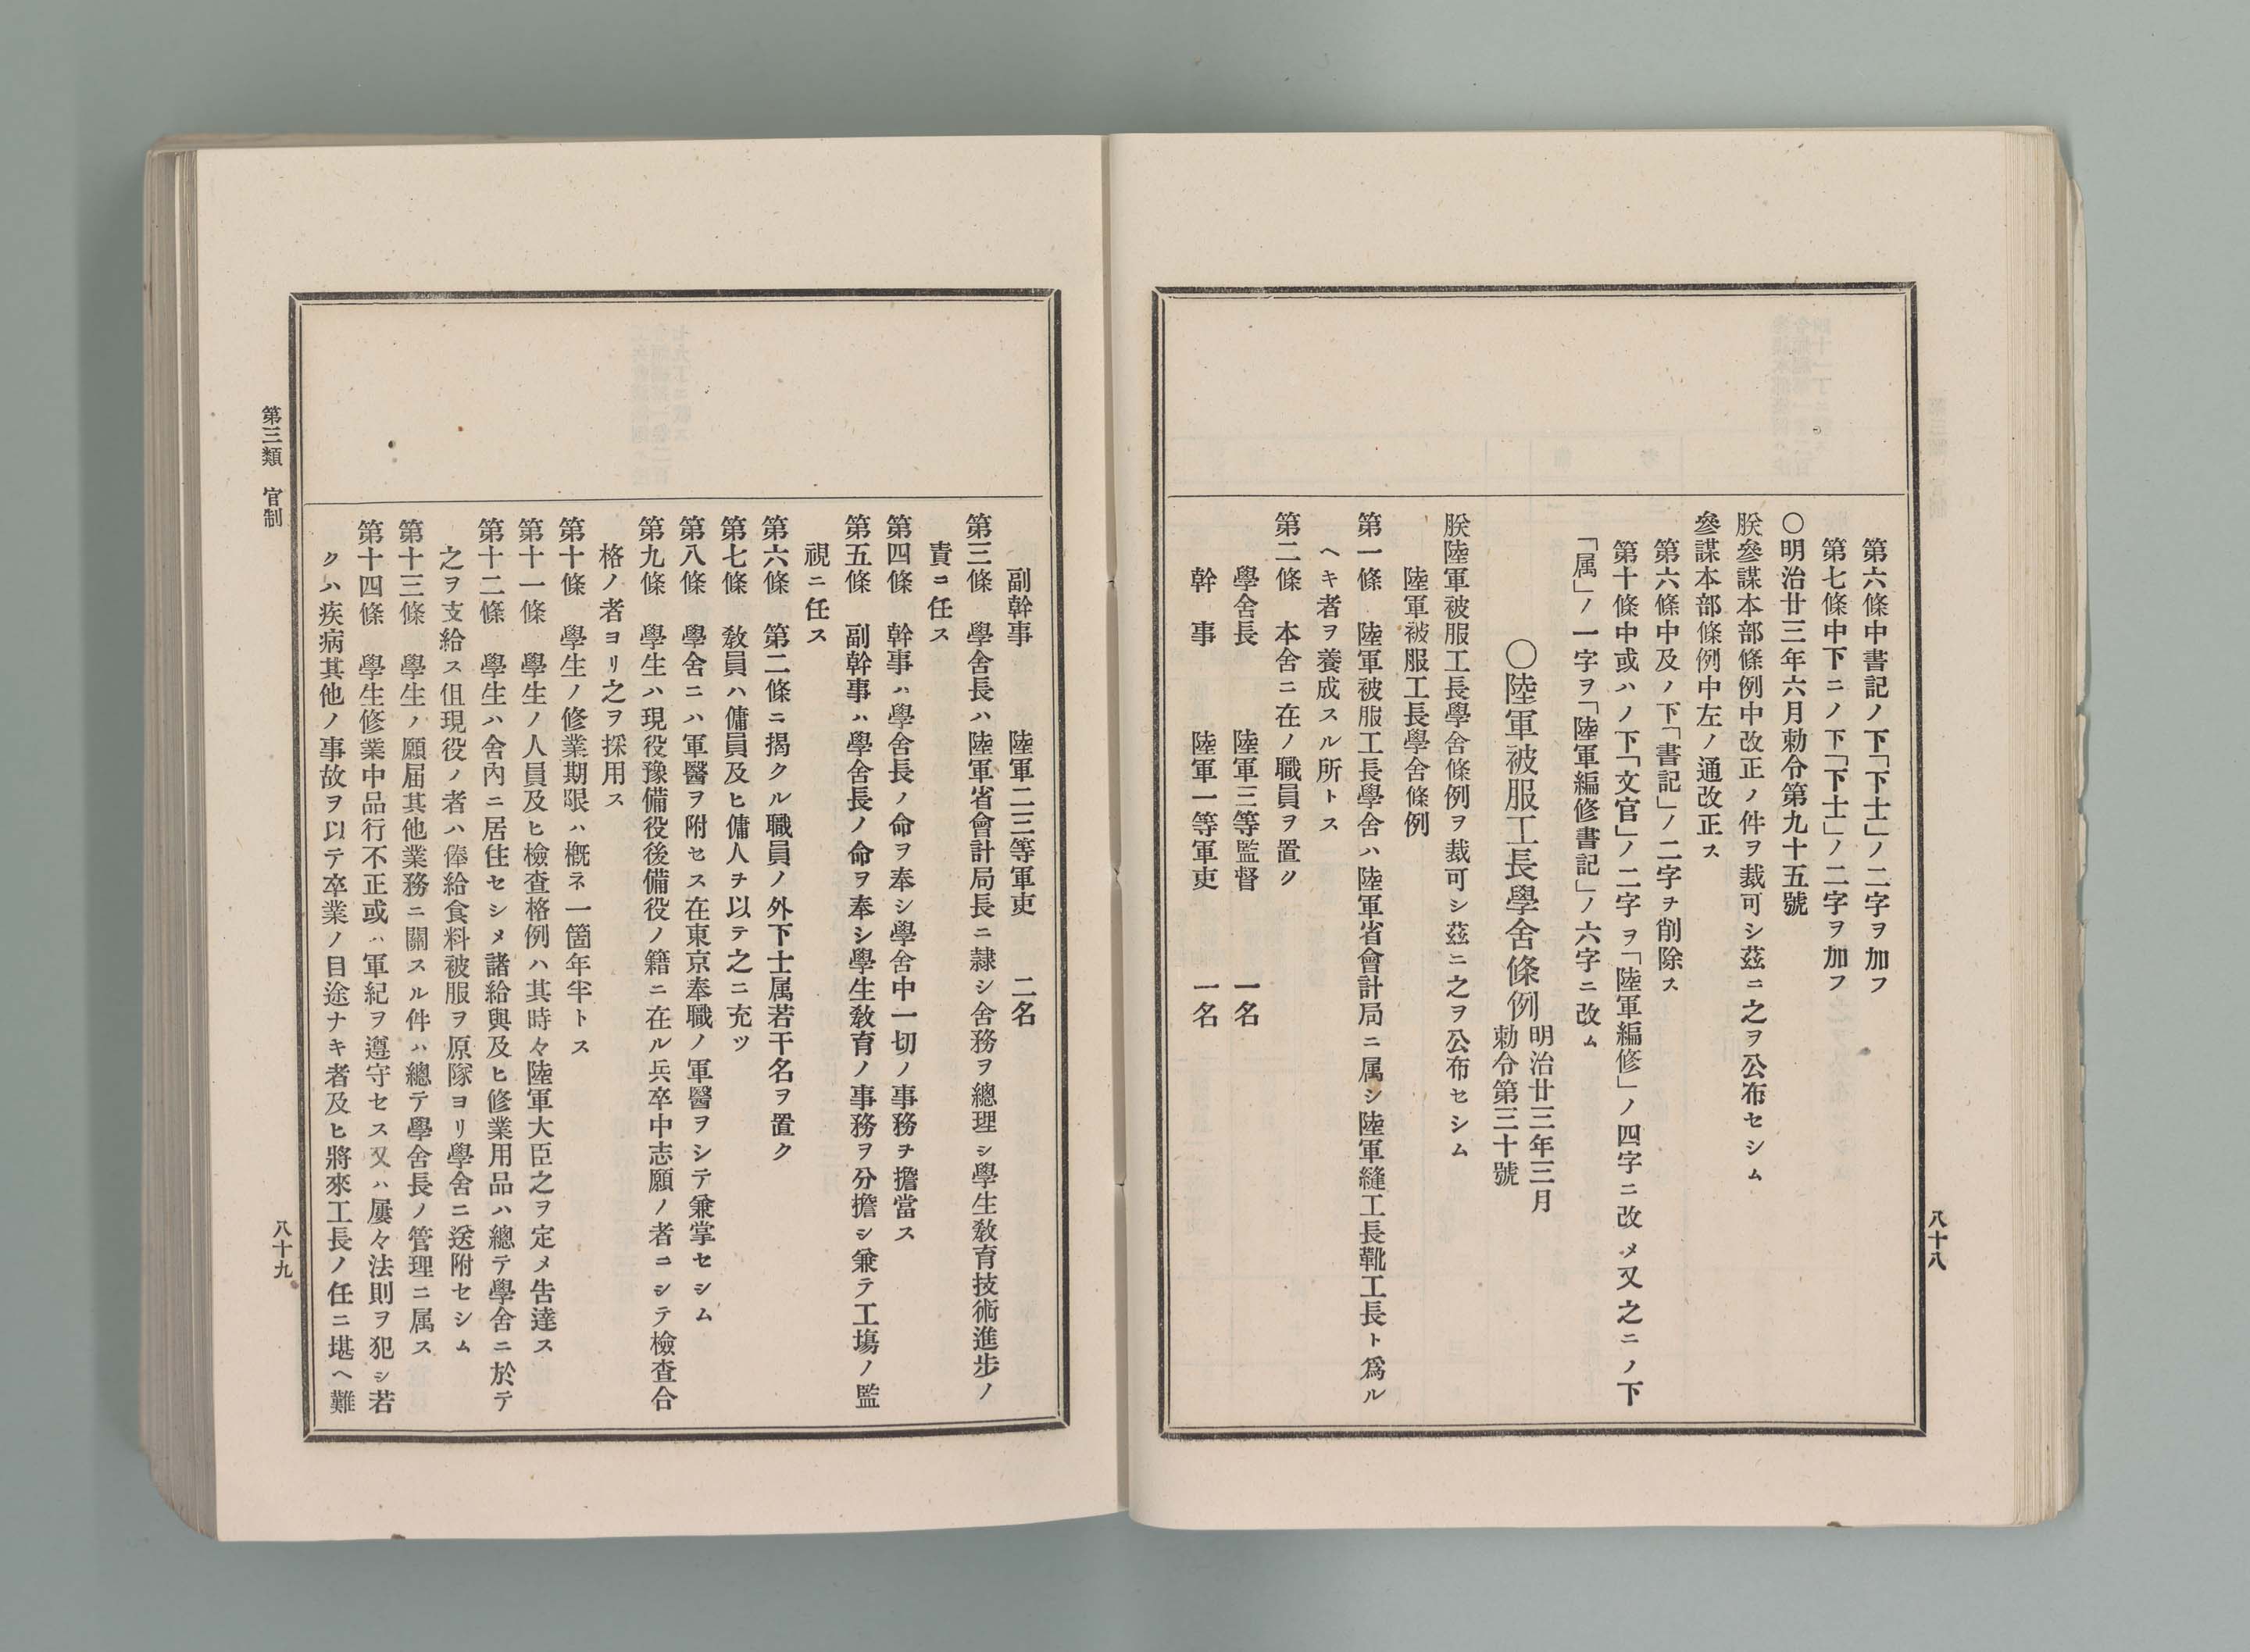 第六條中書記ノ下「下士」ノ二字ヲ加フ
第七條中下ニノ下「下士」ノ二字ヲ加フ
〇明治廿三年六月勅令第九十五號
朕參謀本部條例中改正ノ件ヲ裁可シ茲ニ之ヲ公布セシム
參謀本部條例中左ノ通改正ス
第六條中及ノ下「書記」ノ二字ヲ削除ス
第十條中或ハノ下「文官」ノ二字ヲ「陸軍編修」ノ四字ニ改メ又之ニノ下
「属」ノ一字ヲ「陸軍編修書記」ノ六字ニ改ム
〇陸軍被服工長學舍條例
明治廿三年三月
勅令第三十號
朕陸軍被服工長學舍條例ヲ裁可シ茲ニ之ヲ公布セシム
陸軍被服工長學舍條例
第一條 陸軍被服工長學舍ハ陸軍省會計局ニ属シ陸軍縫工長靴工長ト爲ル
ヘキ者ヲ養成スル所トス
第二條 本舍ニ在ノ職員ヲ置ク
學舍長 陸軍三等監督 一名
幹事 陸軍一等軍吏 一名
八十八
副幹事 陸軍二三等軍吏 二名
第三條 學舍長ハ陸軍省會計局長ニ隷シ舍務ヲ總理シ學生敎育技術進步ノ
責ニ任ス
第四條 幹事ハ學舍長ノ命ヲ奉シ學舍中一切ノ事務ヲ擔當ス
第五條 副幹事ハ學舍長ノ命ヲ奉シ學生敎育ノ事務ヲ分擔シ兼テ工塲ノ監
視ニ任ス
第六條 第二條ニ揭クル職員ノ外下士属若干名ヲ置ク
第七條 敎員ハ傭員及ヒ傭人ヲ以テ之ニ充ツ
第八條 學舍ニハ軍醫ヲ附セス在東京奉職ノ軍醫ヲシテ兼掌セシム
第九條 學生ハ現役豫備役後備役ノ籍ニ在ル兵卒中志願ノ者ニシテ檢査合
格ノ者ヨリ之ヲ採用ス
第十條 學生ノ修業期限ハ概ネ一箇年半トス
第十一條 學生ノ人員及ヒ檢查格例ハ其時々陸軍大臣之ヲ定メ告達ス
第十二條 學生ハ舍內ニ居住セシメ諸給與及ヒ修業用品ハ總テ學舍ニ於テ
之ヲ支給ス但現役ノ者ハ俸給食料被服ヲ原隊ヨリ學舍ニ送附セシム
第十三條 學生ノ願届其他業務ニ關スル件ハ總テ學舍長ノ管理ニ属ス
第十四條 學生修業中品行不正或ハ軍紀ヲ遵守セス又ハ屢々法則ヲ犯シ若
クハ疾病其他ノ事故ヲ以テ卒業ノ目途ナキ者及ヒ將來工長ノ任ニ堪ヘ難
第三類 官制
八十九